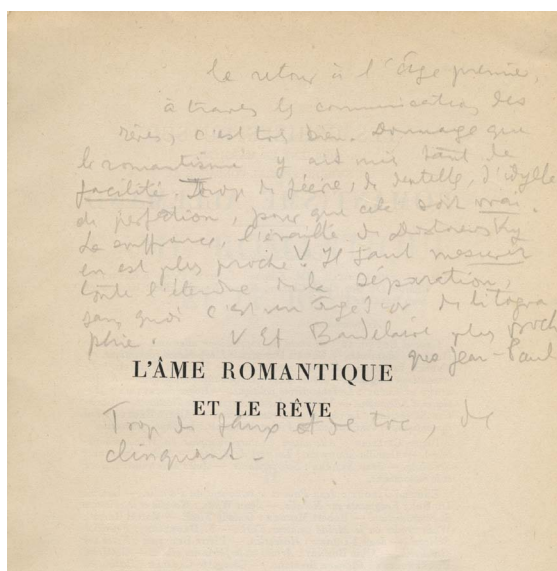 le retour à l'âge premier,
à travers les communications des
rêves, c'est très bien. Dommage que
le romantisme y ait mis tant de
facilité. Trop de féérie, de dentelle, d'idylle
de perfection, pour que cela soit vrai.
La souffrance, de Dostoievsky
en est plus proche. V Il faut mesurer
toute l'étendue de la séparation,
sans quoi c'est un âge d'or de litogra
phie. V Et Baudelaire plus proche
que Jean-Paul
L'ÂME ROMANTIQUE
ET LE RÊVE
Trop de faux et de toc, de
clinquant -